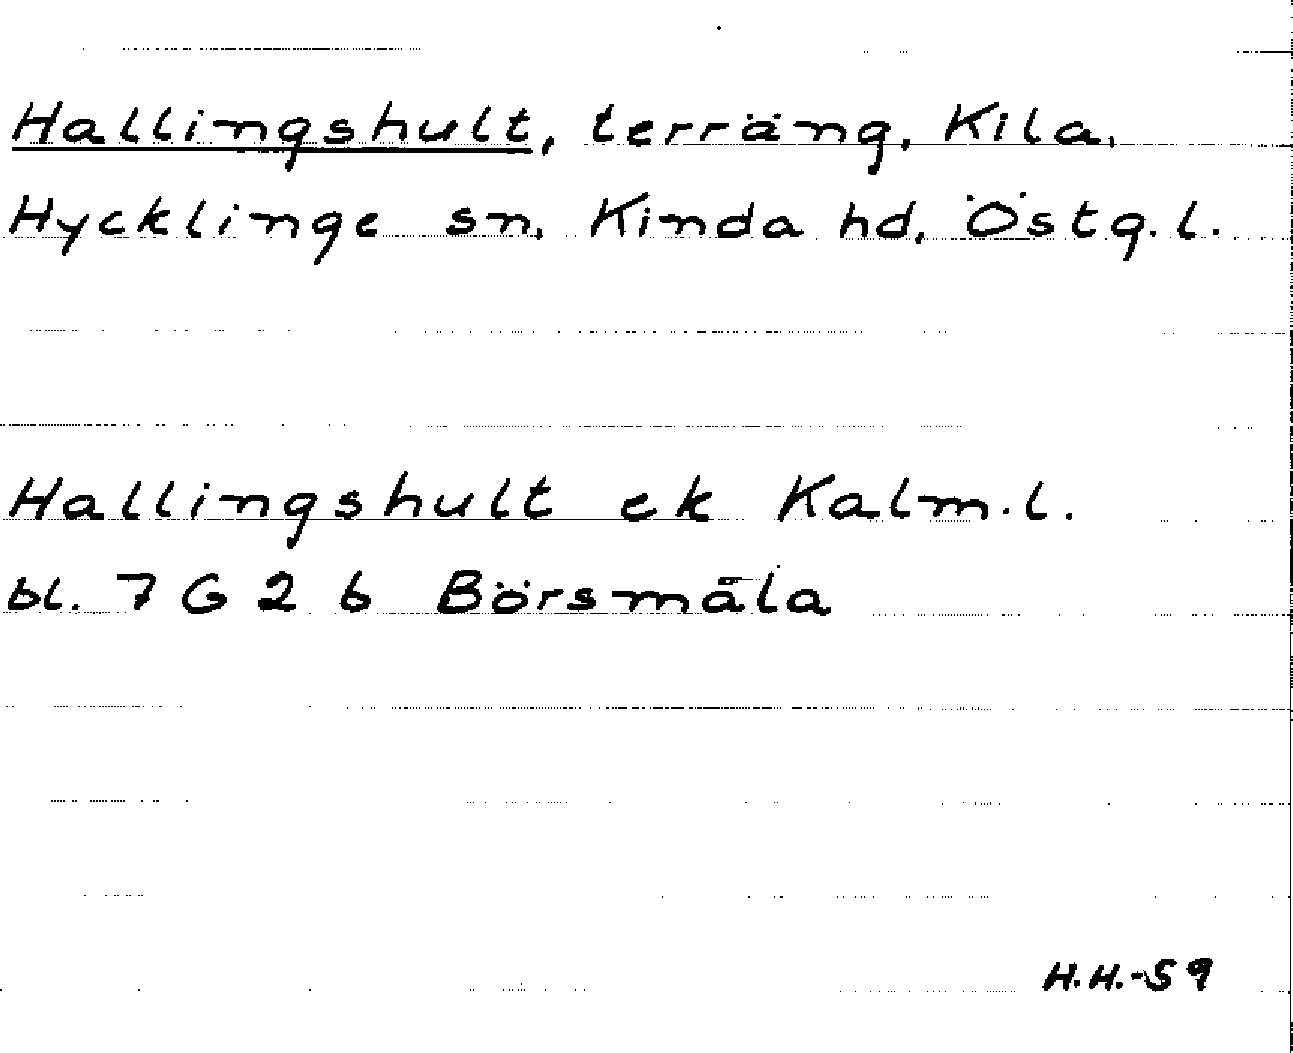 Hallingshult, terräng, Kila,
Hycklinge sn, Kinda hd, Östg. l.
Hallingshult ek Kalm. l.
bl. 7 G 2 b Börsmåla
H.H.-59